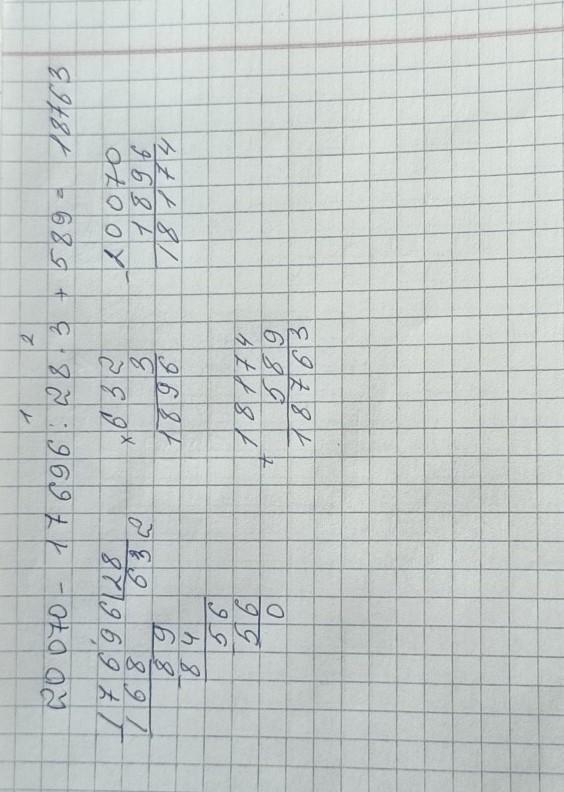 1 2
20070 - 17696 : 28 · 3 + 589 = 18763
17696 | 28
168 | 632
89
84
56
56
0
× 632
3
1896
- 20070
1896
18174
+ 18174
589
18763